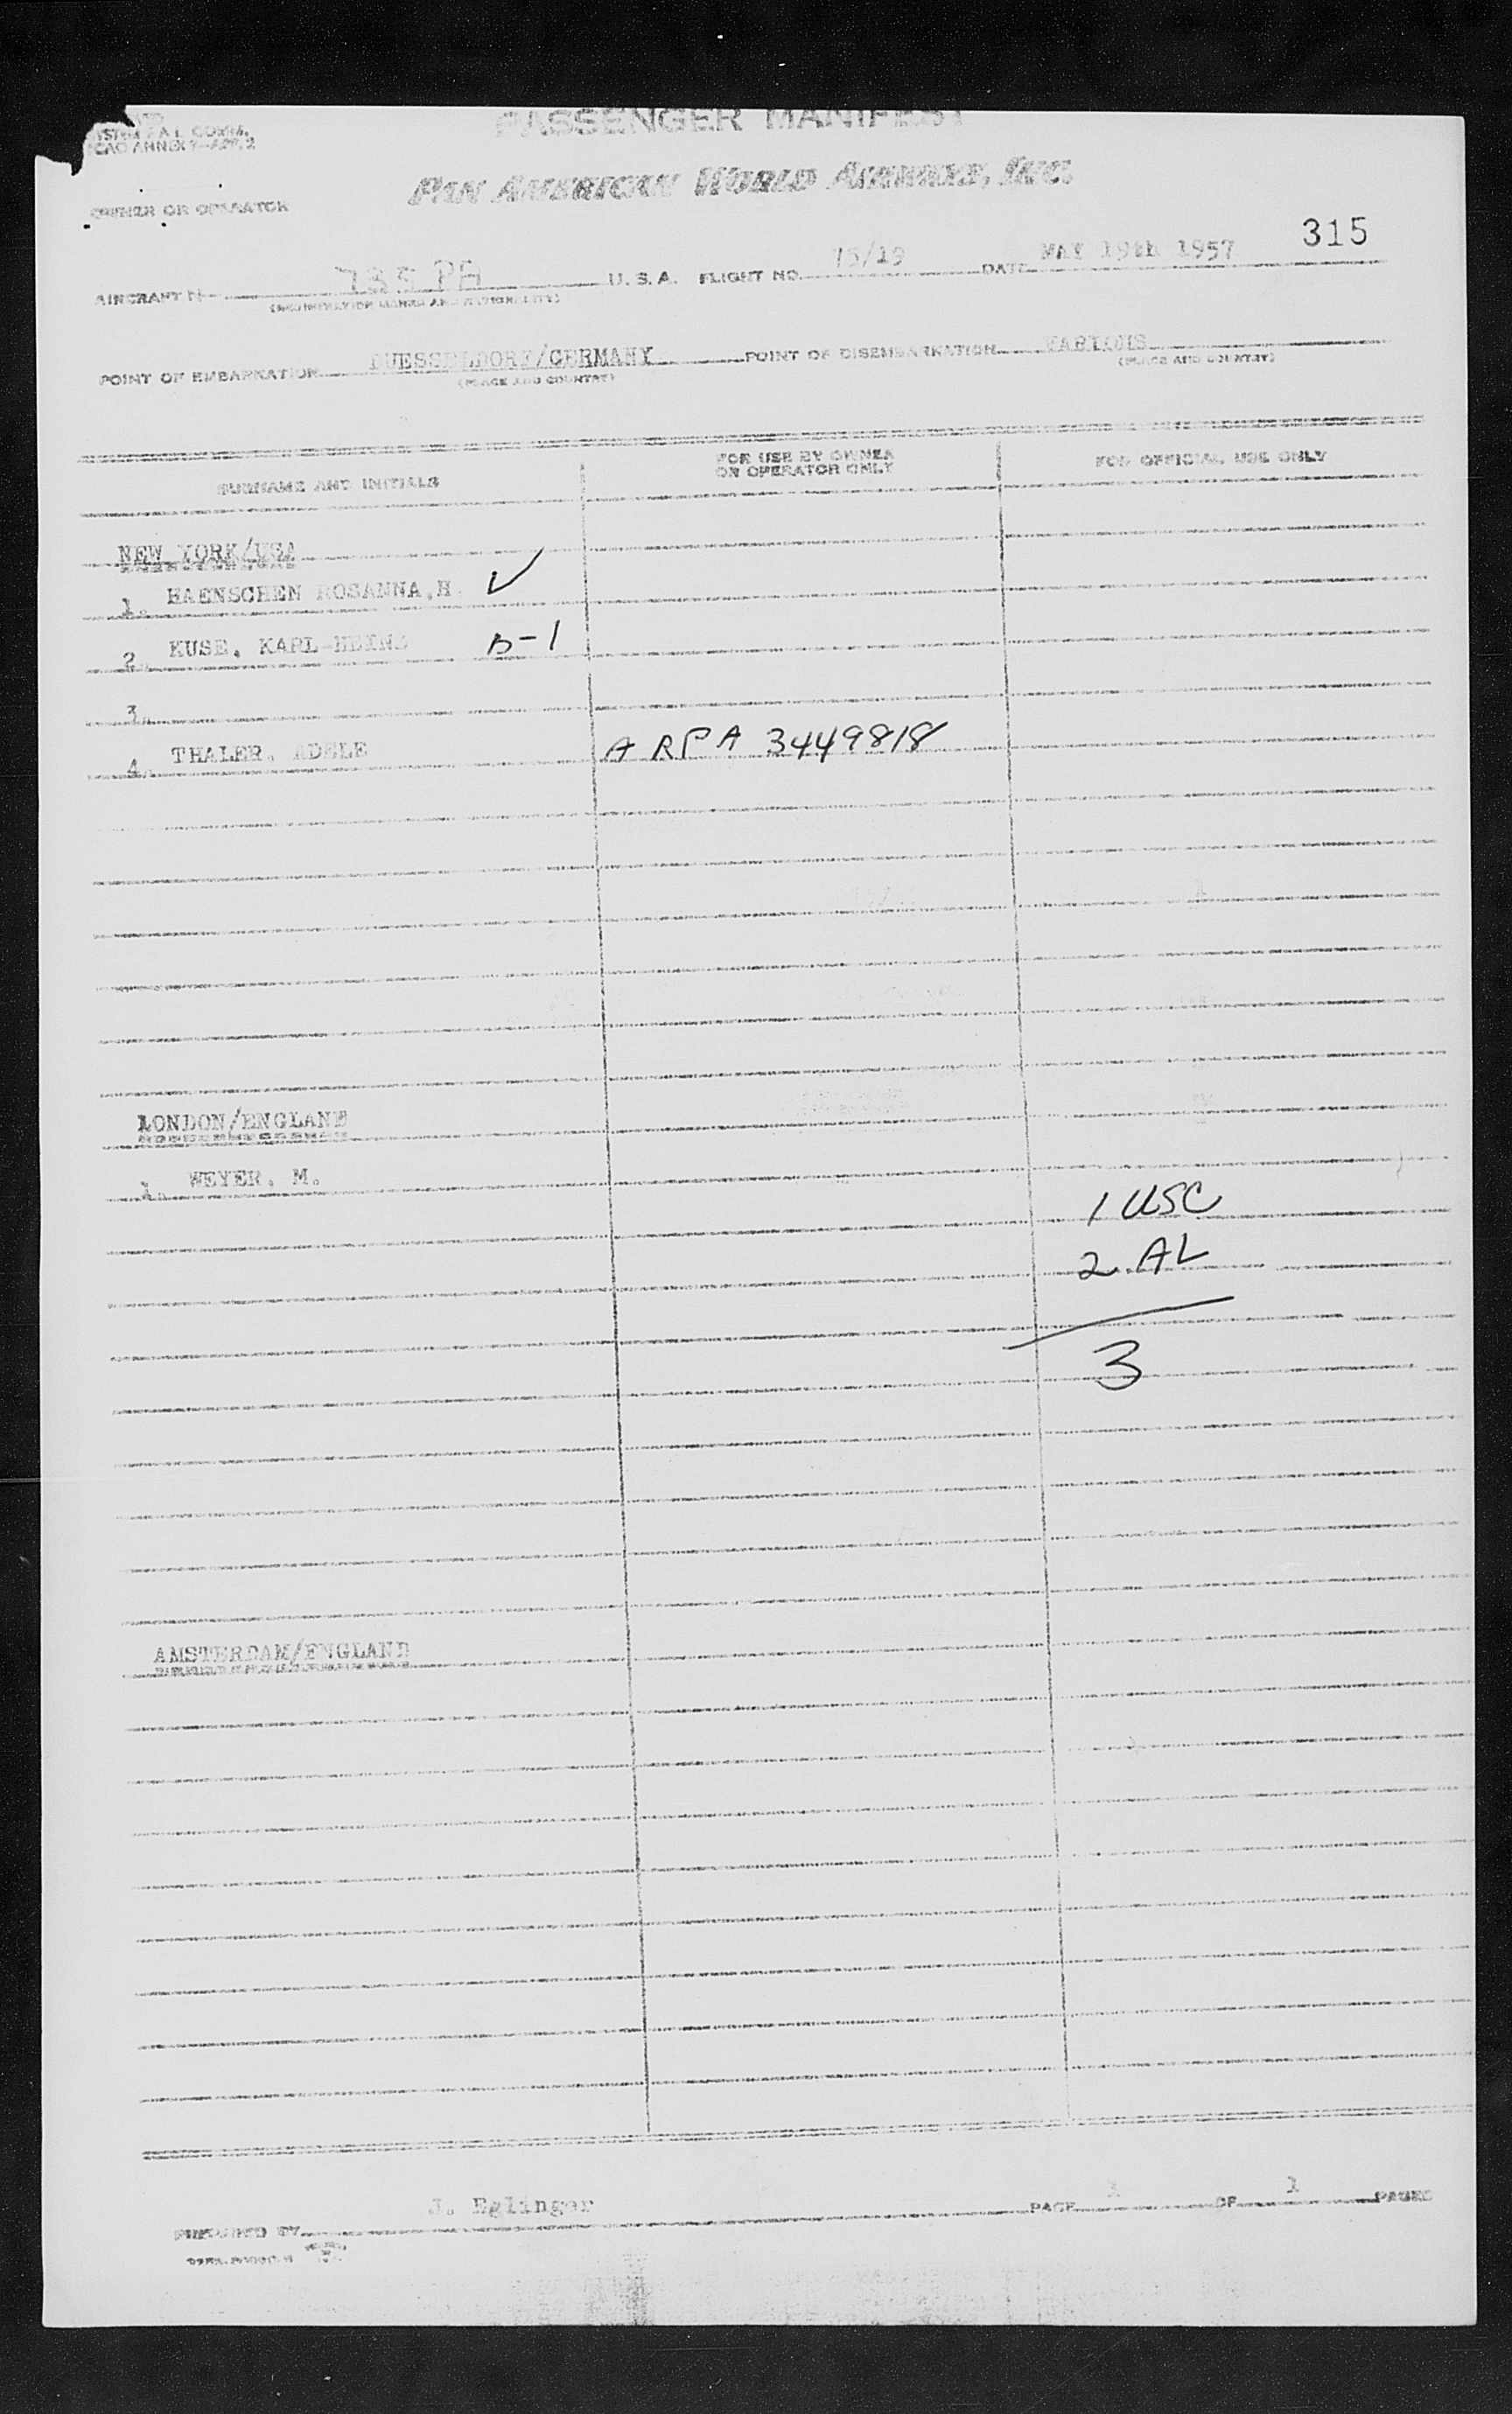 PASSENGER MANIFEST
ICAO ANNEX 9-APP. 2
PAN AMERICAN WORLD AIRWAYS, INC.
OWNER OR OPERATOR
315
AIRCRAFT N PA U. S. A. FLIGHT NO. 75/19 DATE MAY 19th 1957
(REGISTRATION MARKS AND NATIONALITY)
POINT OF EMBARKATION DUESSELDORF/GERMANY POINT OF DISEMBARKATION VARIOUS
(PLACE AND COUNTRY) (PLACE AND COUNTRY)
SURNAME AND INITIALS FOR USE BY OWNER OR OPERATOR ONLY FOR OFFICIAL USE ONLY
NEW YORK/USA
1. HAENSCHEN ROSANNA,H ✓
2. KUSE, KARL-HEINZ B-1
3.
4. THALER, ADELE A RPA 3449818
LONDON/ENGLAND
1. WEYER, M.
1 USC
2 AL
3
AMSTERDAM/ENGLAND
PREPARED BY J. Eglinger PAGE 1 OF 1 PAGES